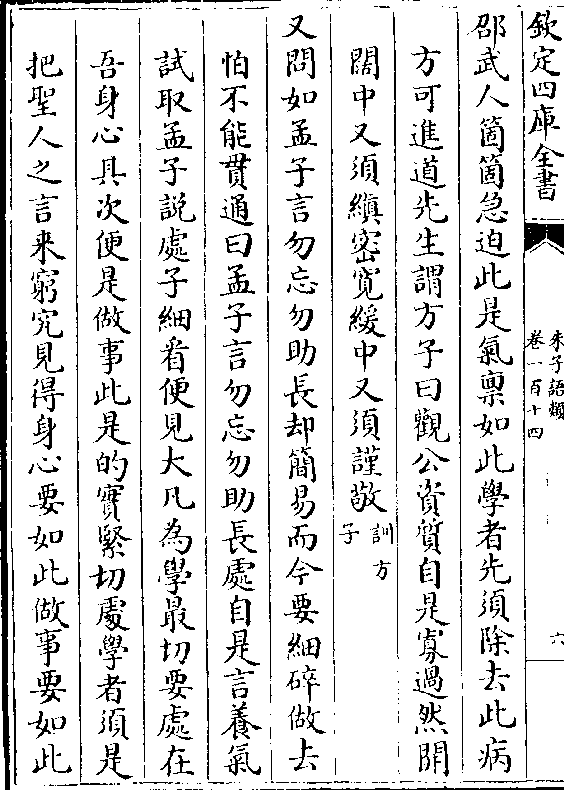 欽定四庫全書
朱子語類
卷一百十四
六
邵武人箇箇急迫此是氣禀如此學者先須除去此病
方可進道先生謂方子曰觀公資質自是寡過然開
闊中又須縝密寛緩中又須謹敬訓方子
又問如孟子言勿忘勿助長却簡易而今要細碎做去
怕不能貫通曰孟子言勿忘勿助長處自是言養氣
試取孟子說處子細看便見大凡為學最切要處在
吾身心其次便是做事此是的實緊切處學者須是
把聖人之言来窮究見得身心要如此做事要如此